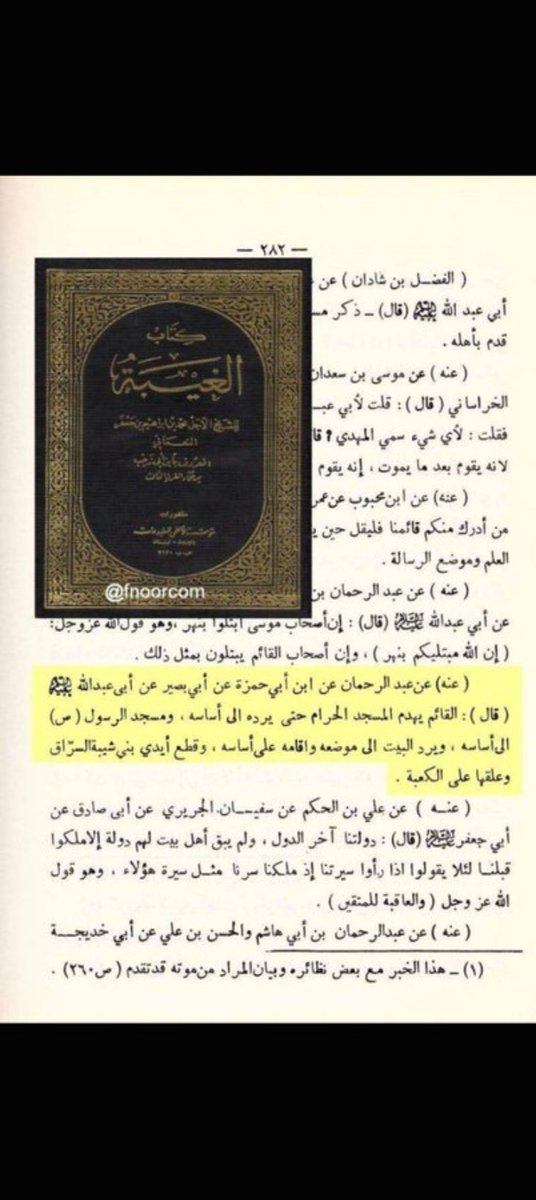 — ٢٨٢ —
( الفضل بن شاذان ) عن
أبي عبد الله عليه السلام (قال) ـ ذكر
قدم بأهله .
( عنه ) عن موسى بن سعدان
الخراساني ( قال ) : قلت لأبي
فقلت : لأي شيء سمي المهدي ؟
لانه يقوم بعد ما يموت ، إنه يقوم
( عنه) عن ابن محبوب عن
من أدرك منكم قائمنا فليقل حين
العلم وموضع الرسالة .
( عنه ) عن عبد الرحمان بن
كتاب
الغيبة
النعماني
@fnoorcom
عن أبي عبدالله عليه السلام (قال) : إن أصحاب موسى ابتلوا بنهر ،وهو قول الله عزوجل:
( إن الله مبتليكم بنهر ) ، وإن أصحاب القائم يبتلون بمثل ذلك .
( عنه) عن عبد الرحمان عن ابن أبي حمزة عن أبي بصير عن أبي عبدالله عليه السلام
( قال ) : القائم يهدم المسجد الحرام حتى يرده الى أساسه ، ومسجد الرسول (ص)
الى أساسه ، ويرد البيت الى موضعه واقامه على أساسه ، وقطع أيدي بني شيبة السرّاق
وعلقها على الكعبة .
( عنه ) عن علي بن الحكم عن سفيان الجريري عن أبي صادق عن
أبي جعفر عليه السلام (قال) : دولتنا آخر الدول ، ولم يبق أهل بيت لهم دولة إلا ملكوا
قبلنا لئلا يقولوا اذا رأوا سيرتنا إذ ملكنا سرنا مثل سيرة هؤلاء ، وهو قول
الله عز وجل ( والعاقبة للمتقين ) .
( عنه ) عن عبدالرحمان بن أبي هاشم والحسن بن علي عن أبي خديجة
(١) ـ هذا الخبر مع بعض نظائره وبيان المراد من موته قد تقدم ( ص ٢٦٠) .